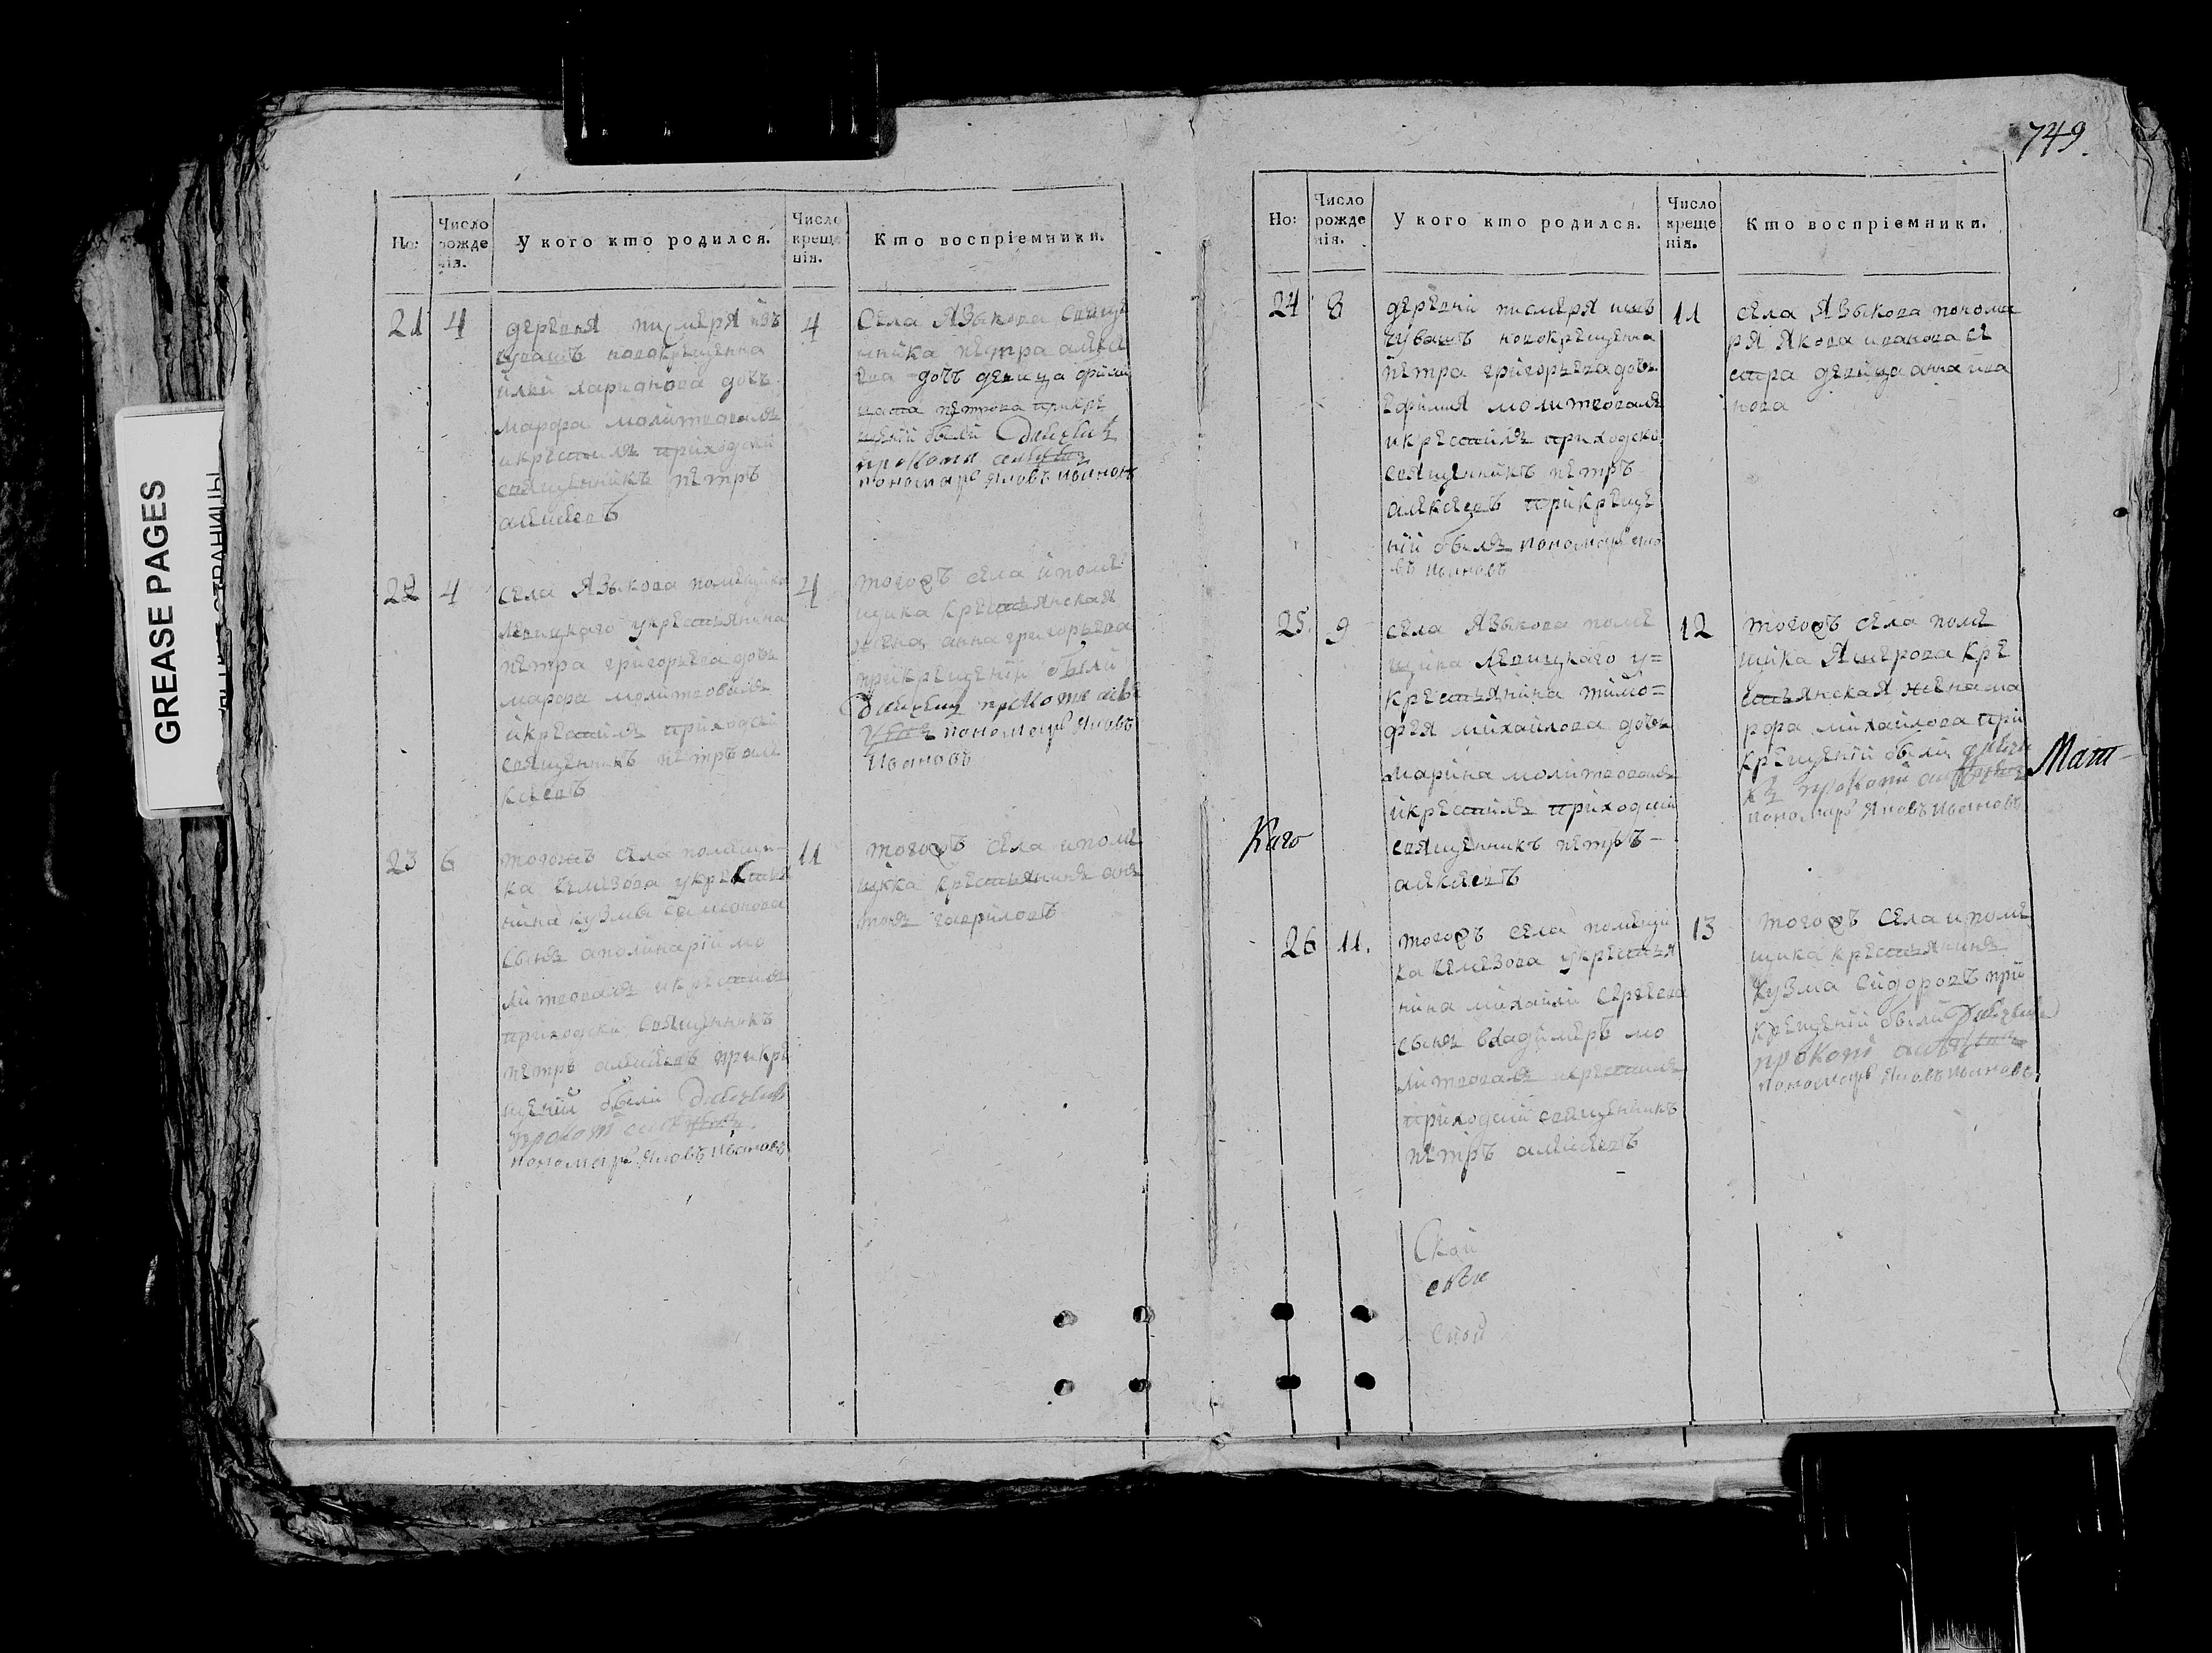 GREASE PAGES
749.
Но:
Число рожде нія.
У кого кто родился.
Число креще нія.
Кто воспріемники.
21
4
деревня писмеря изъ
чувашъ новокрещенна
илей ларионова дочь
марфа молитвовалъ
икрестилъ приходски
священникъ петръ
алексеевъ
4
Села Языкова свяще
нника петра алексе
ева дочь девица
петрова прикре
щеніи были
пономарь Яковъ Ивановъ
22
4
села Языкова помещика
левицкаго укрестьянина
петра григорьева дочь
марфа молитвовалъ
икрестилъ приходски
священникъ петръ але
ксеевъ
4
тогожъ села ипоме
щика крестьянская
жена анна григорьева
прикрещеніи были
пономарь Яковъ
Ивановъ
23
6
тогожъ села помещи
ка укрестья
нина кузмы симионова
сынъ аполинарій мо
литвовалъ икрестилъ
приходски священникъ
петръ алексеевъ прикре
щеніи были
пономарь Яковъ Ивановъ
11
тогожъ села ипоме
щика крестьянинъ ан
тонъ гавриловъ
Но:
Число рожде нія.
У кого кто родился.
Число креще нія.
Кто воспріемники.
24
8
деревни писмеря изъ
чувашъ новокрещенна
петра григорьева дочь
ефимия молитвовалъ
икрестилъ приходски
священникъ петръ
алексеевъ прикреще
ніи былъ пономарь яко
въ Ивановъ
11
села Языкова понома
ря Якова иванова се
стра девица анна ива
нова
25.
9
села Языкова поме
щика левицкаго у=
крестьянина тимо=
фея михайлова дочь
марина молитвовалъ
икрестилъ приходски
священникъ петръ-
алексеевъ
12
тогожъ села поме
щика кре
стьянская жена ма
рфа михайлова при
крещеніи были
пономарь Яковъ Ивановъ
26
11.
тогожъ села помещи
ка укрестья
нина михайли сергеева
сынъ владимеръ мо
литвовалъ икрестилъ
приходски священникъ
петръ алексеевъ
13
тогожъ села ипоме
щика крестьянинъ
кузма сидоровъ при
крещеніи были
пономарь Яковъ Ивановъ
Каго
Мат-
Ской